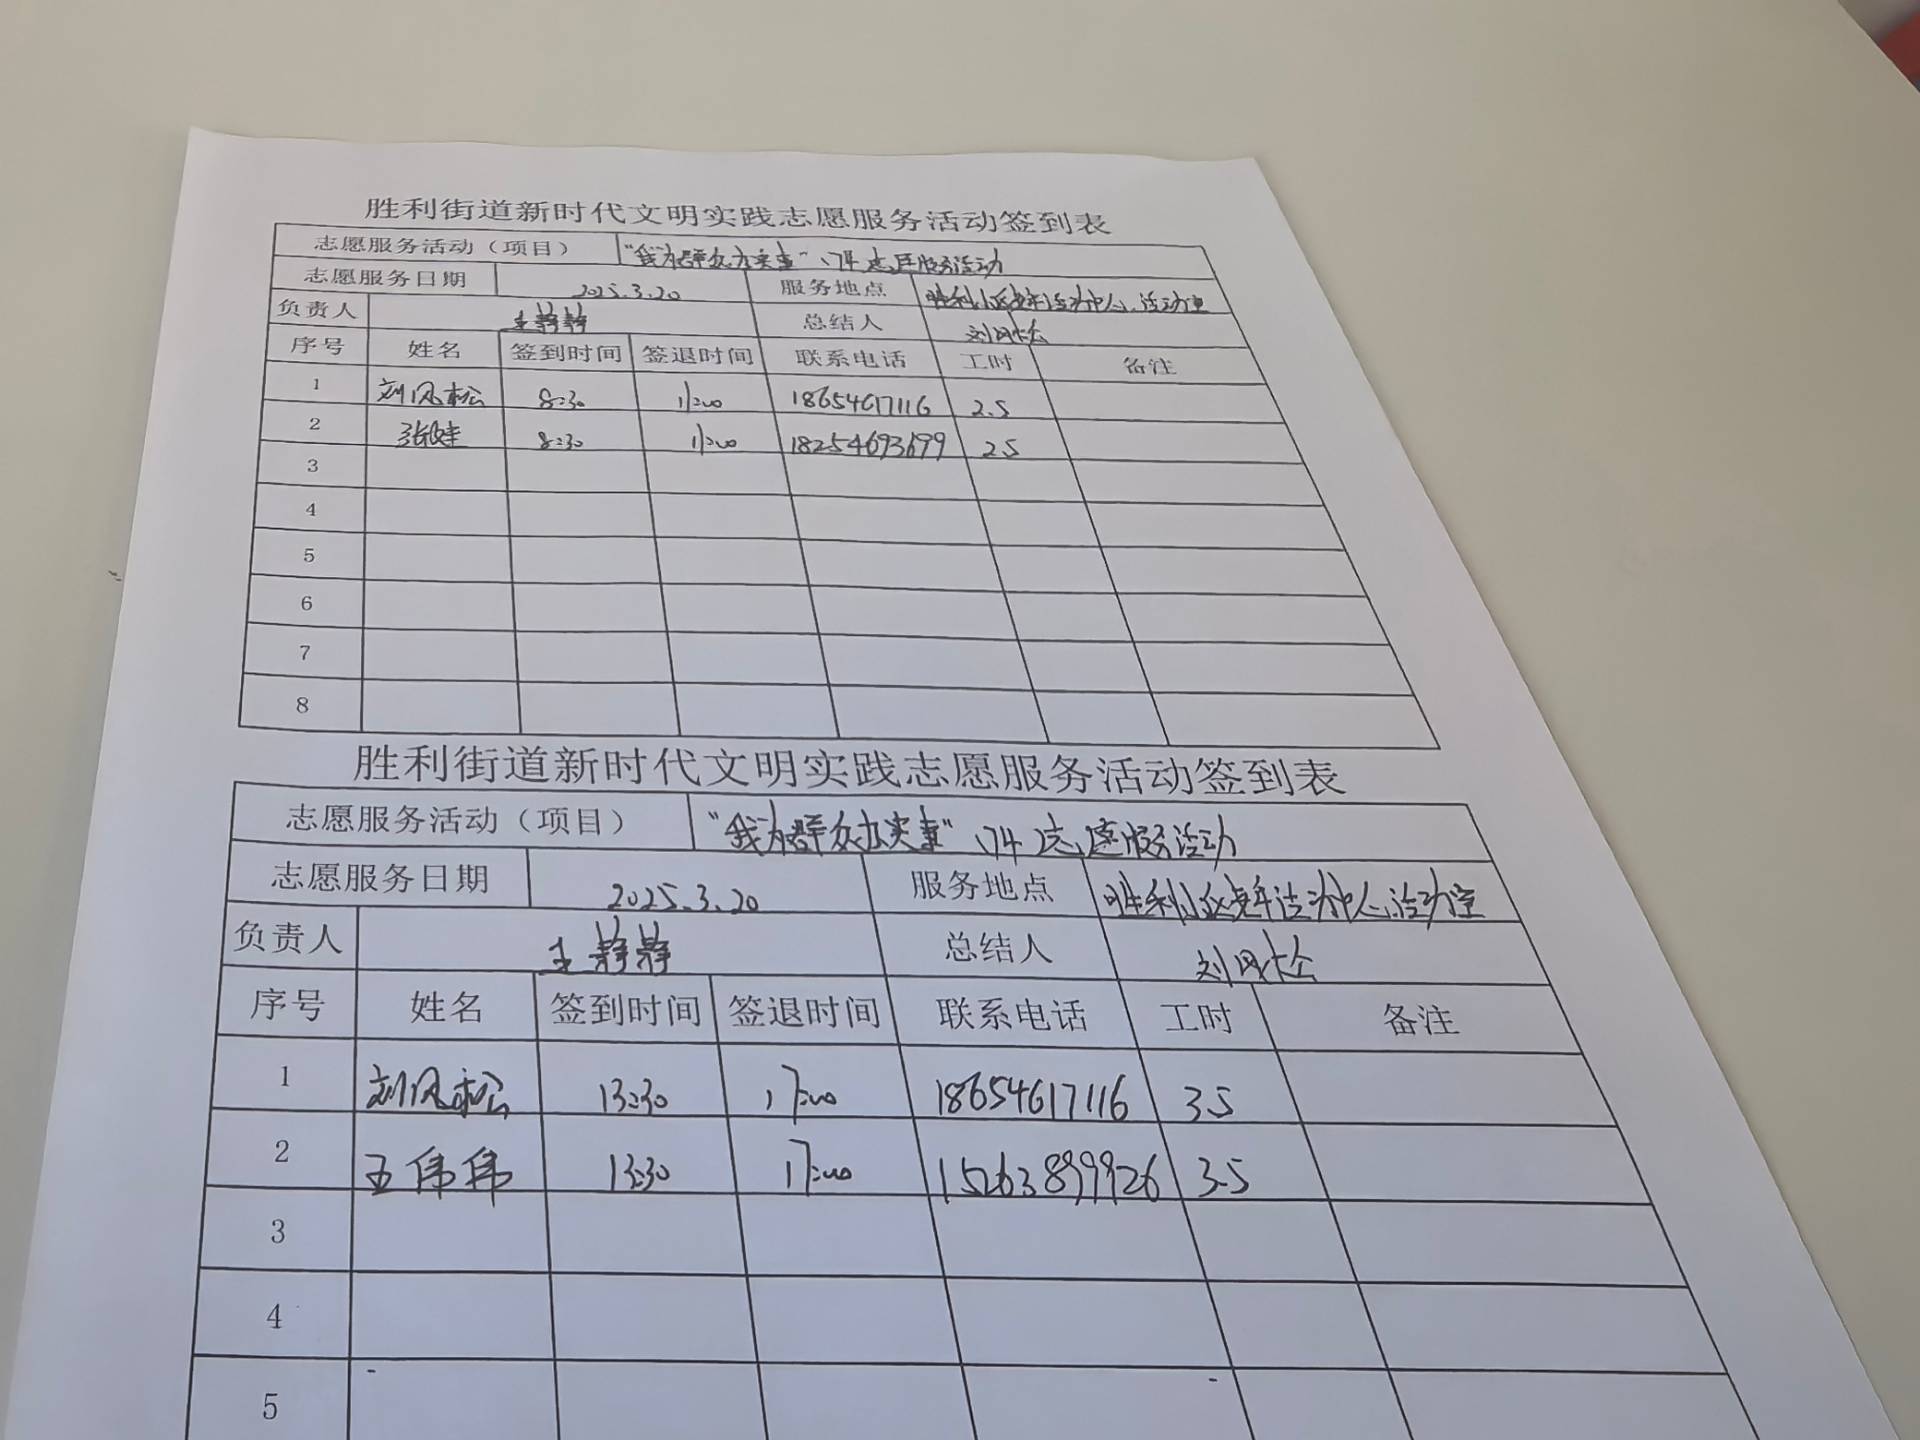 胜利街道新时代文明实践志愿服务活动签到表
志愿服务活动（项目） "我为群众办实事" 志愿服务活动
志愿服务日期 2025.3.20 服务地点 胜利小区老年活动中心活动室
负责人 王静静 总结人 刘风松
序号 姓名 签到时间 签退时间 联系电话 工时 备注
1 刘风松 8:30 11:00 18654617116 2.5
2 张健 8:30 11:00 18254693699 2.5
3
4
5
6
7
8
胜利街道新时代文明实践志愿服务活动签到表
志愿服务活动（项目） "我为群众办实事" 志愿服务活动
志愿服务日期 2025.3.20 服务地点 胜利小区老年活动中心活动室
负责人 王静静 总结人 刘风松
序号 姓名 签到时间 签退时间 联系电话 工时 备注
1 刘风松 13:30 17:00 18654617116 3.5
2 王伟伟 13:30 17:00 15263899926 3.5
3
4
5